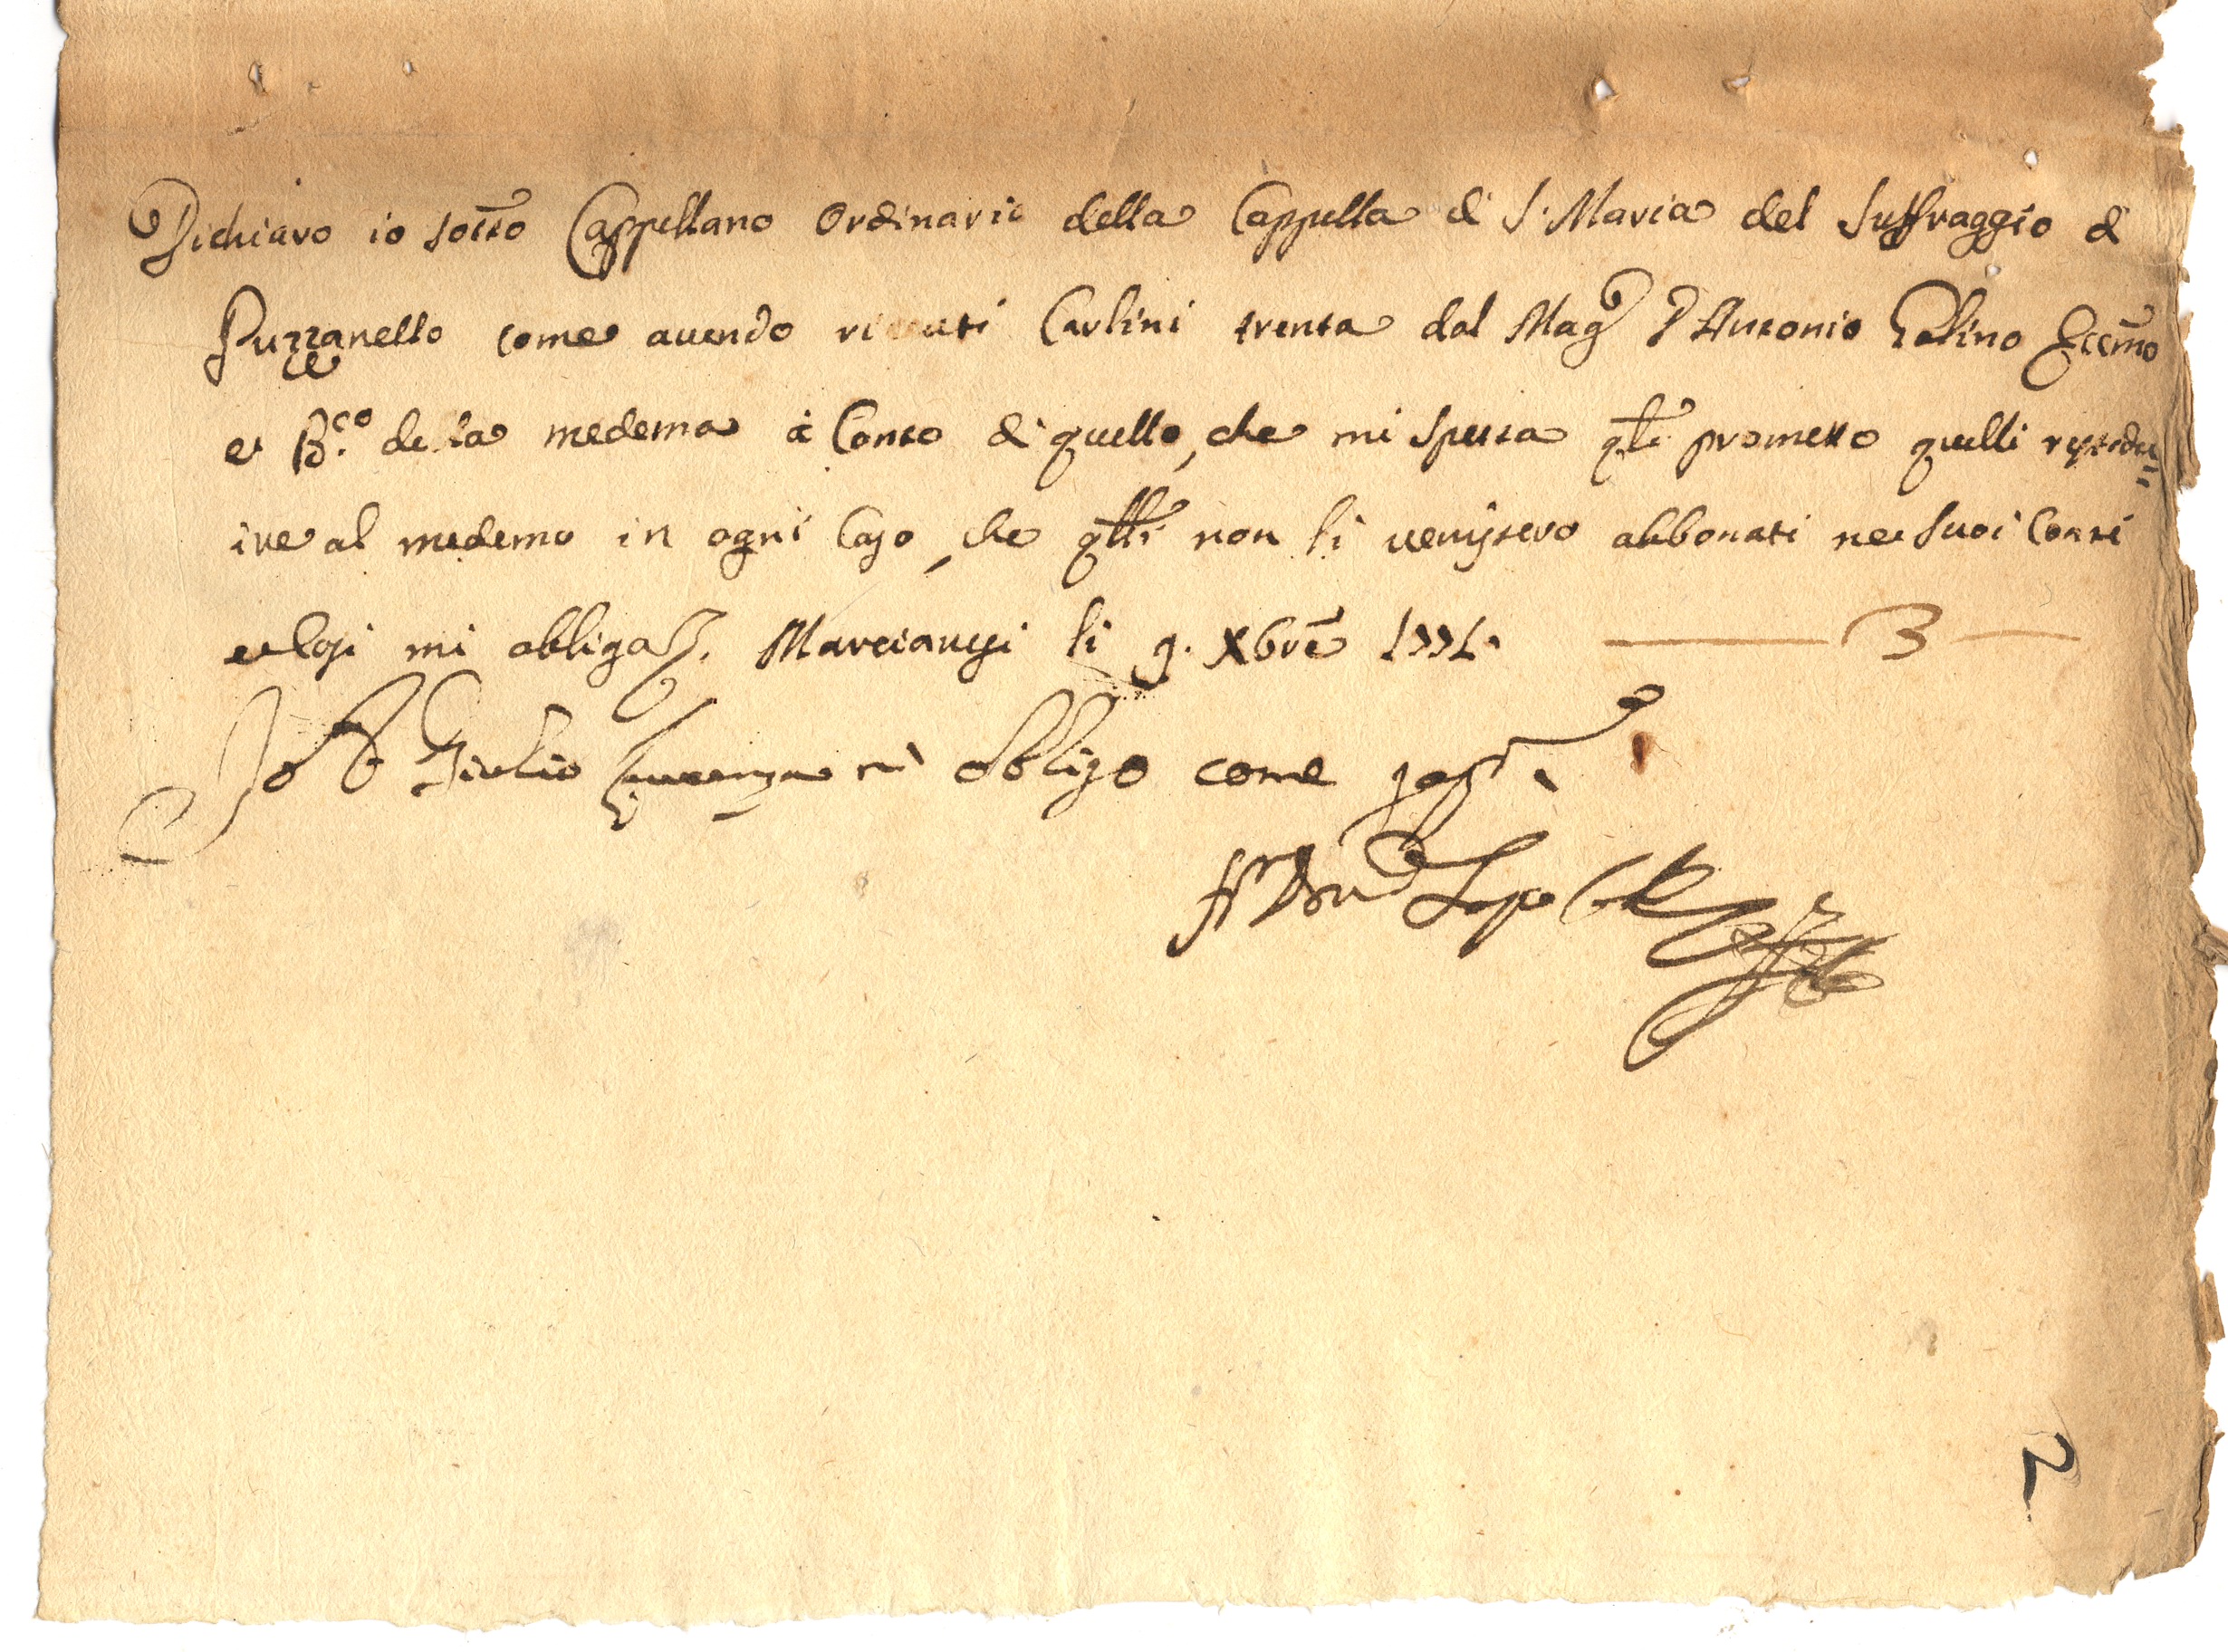 Dichiaro io sotto Cappellano Ordinario della Cappella di S. Maria del Suffraggio di
Puzzanello come avendo ricevuti Carlini trenta dal Mag. D Antonio
et della medema à Conto di quello, che mi spetta qli prometto quelli
al medemo in ogni Caso, che qlli non li venissero abbonati ne suoi Conti
et cosi mi obligo. Marcianisi li 9. Xbre 3
Io D Giulio mi obligo come
2